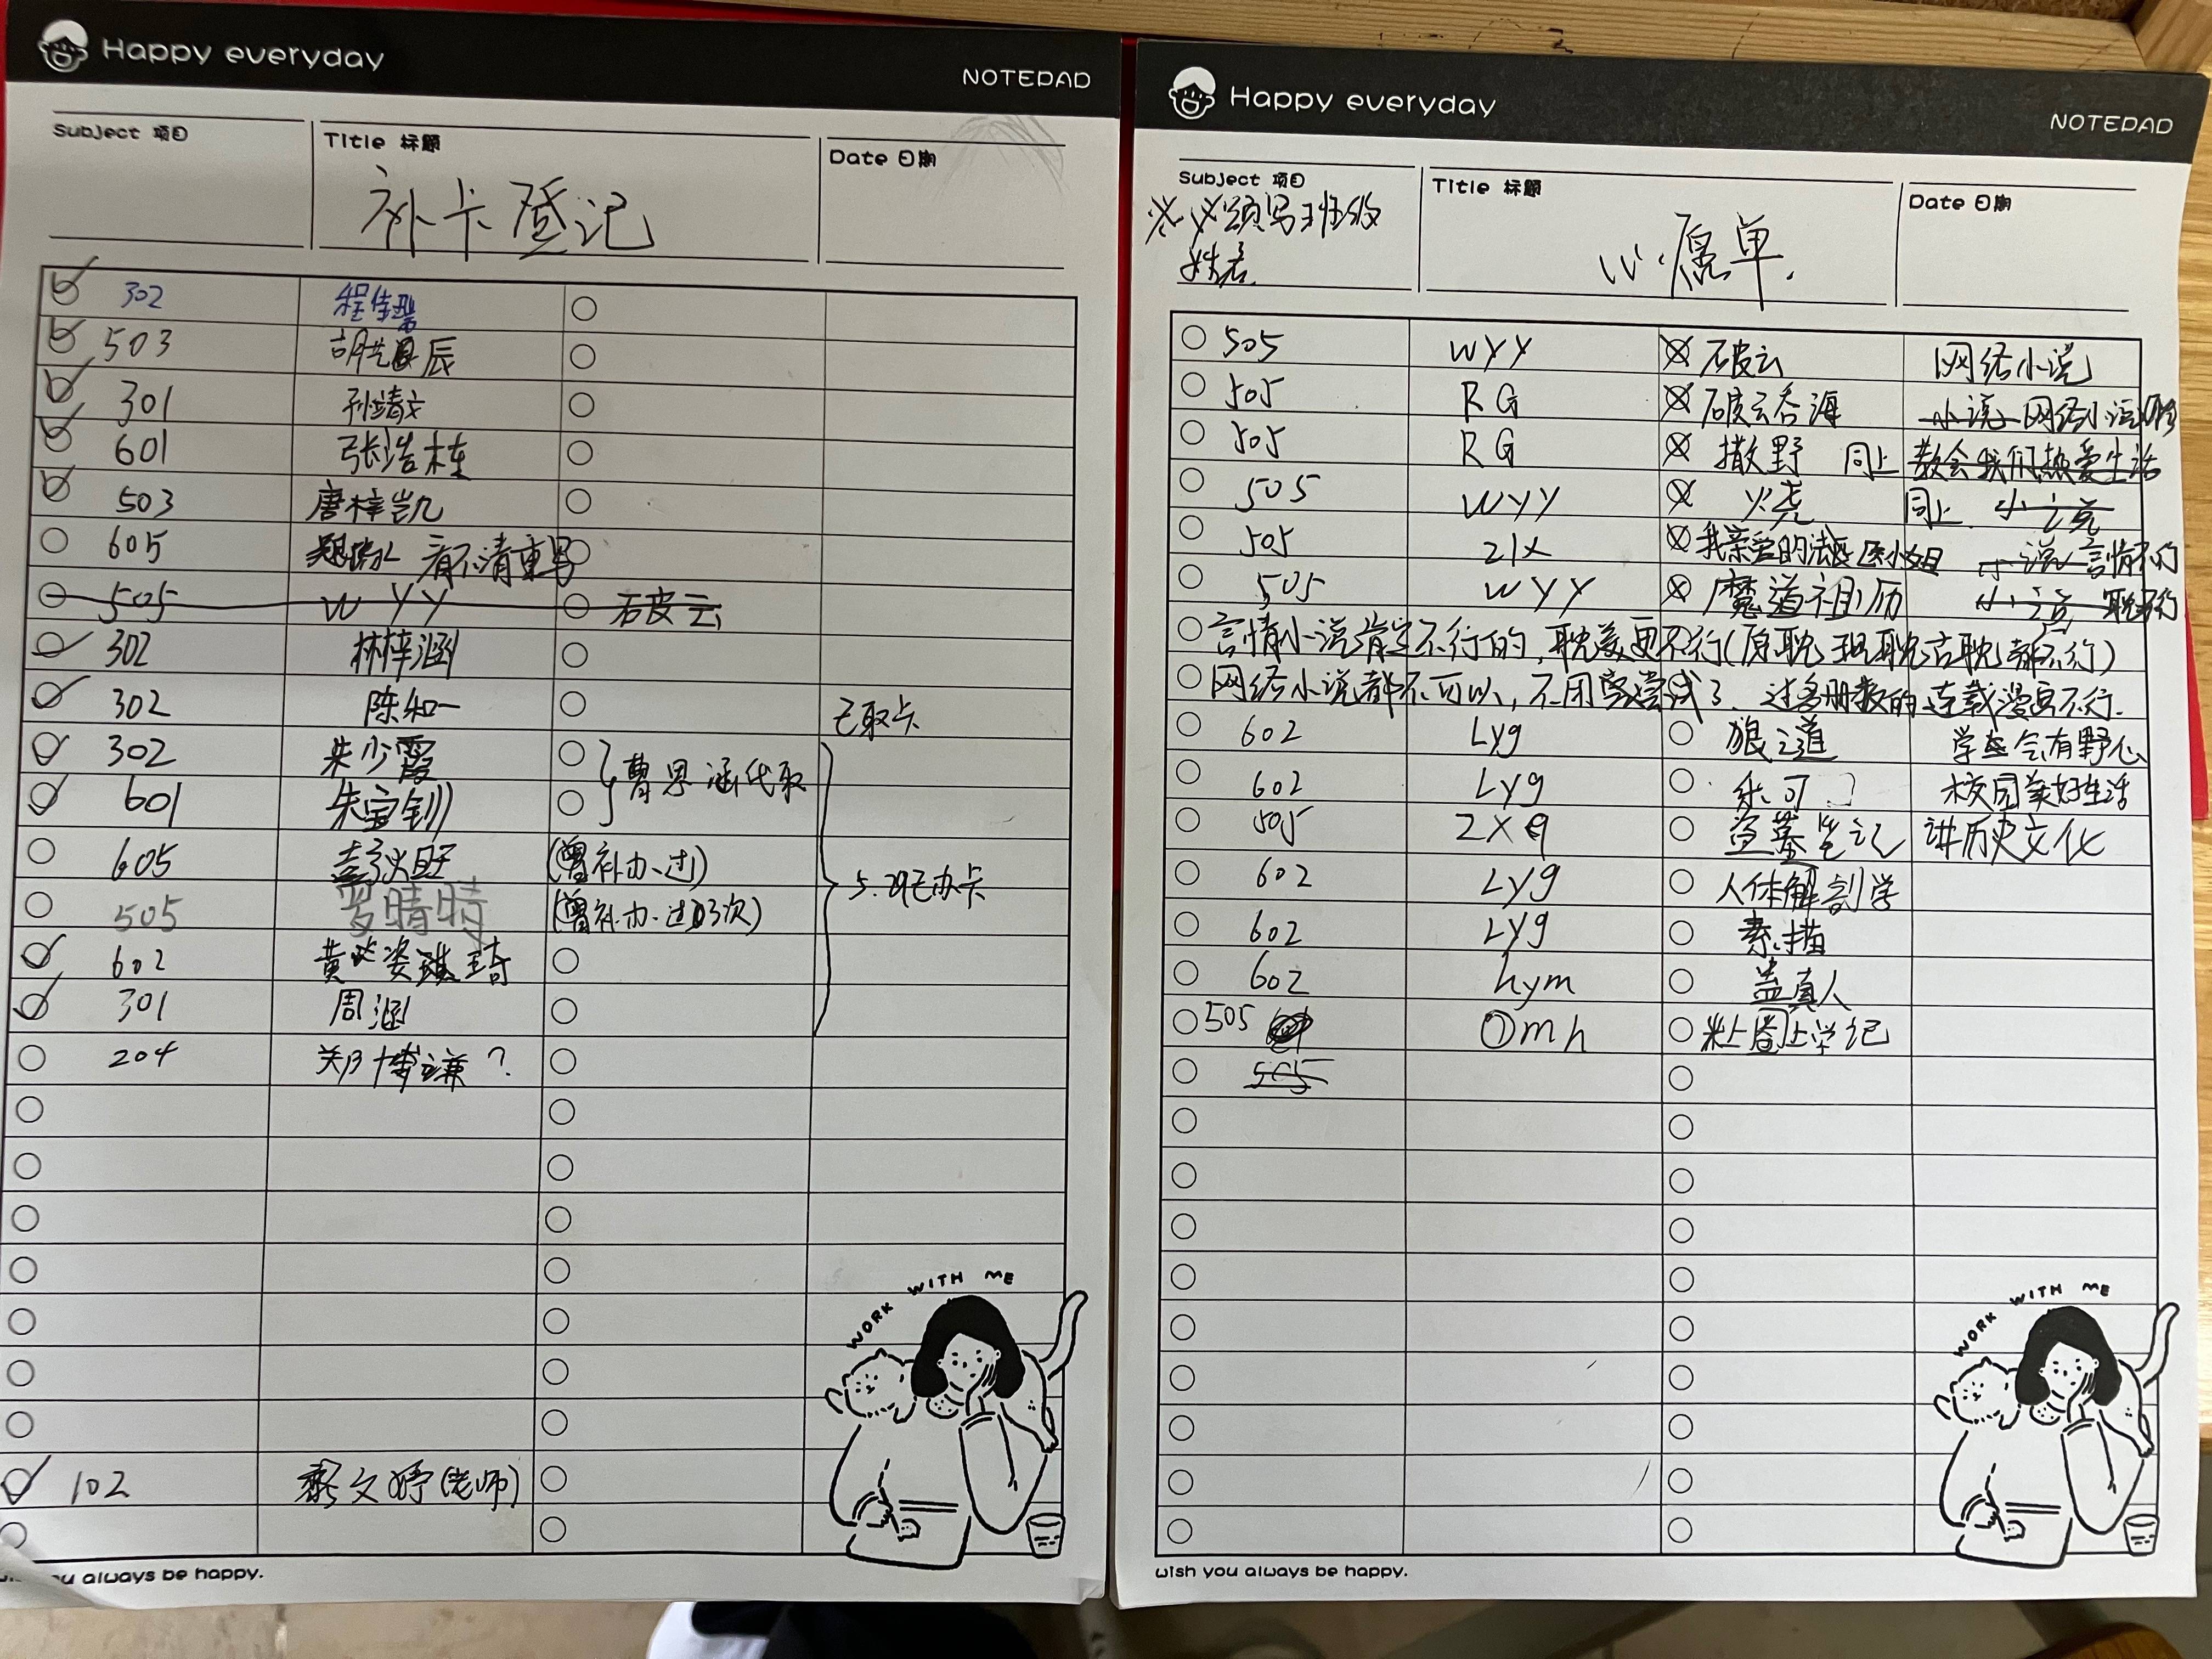 Happy everyday
NOTEPAD
Subject 项目
Title 标题
Date 日期
补卡登记
302 程佳
503 胡 辰
301 孙靖文
601 张浩栋
503 唐梓凯
605 看不清重写
505 WYY 破云
302 林梓涵
302 陈和一 已取卡
302 朱少霞
曹思涵代取
601 朱宝钏
605 彭欢旺 (曾补办过)
5.29已办卡
505 罗晴晴 (曾补办过3次)
602 黄 姿 琦
301 周涵
204 郑博谦?
102 蔡文婷(老师)
WORK WITH ME
you always be happy.
Happy everyday
NOTEPAD
Subject 项目
Title 标题
Date 日期
必须写班级
姓名.
心愿单.
505 WYY 破云 网络小说
505 RG 破云吞海 小说 网络小说
505 RG 撒野 同上 教会我们热爱生活
505 WYY 火烧 同上. 小说
505 zlx 我亲爱的法医小姐 小说 言情不行
505 WYY 魔道祖师 小说 耽不行
言情小说肯定不行的,耽美更不行(原耽 现耽古耽都不行)
网络小说都不可以,不用尝试了. 过多册数的连载漫画不行.
602 Lyg 狼之道 学生会有野心
602 Lyg 米可 校园美好生活
505 ZXq 盗墓笔记 讲历史文化
602 Lyg 人体解剖学
602 Lyg 素描
602 hym 盖真人
505 Omh 米上圈上学记
505
WORK WITH ME
wish you always be happy.